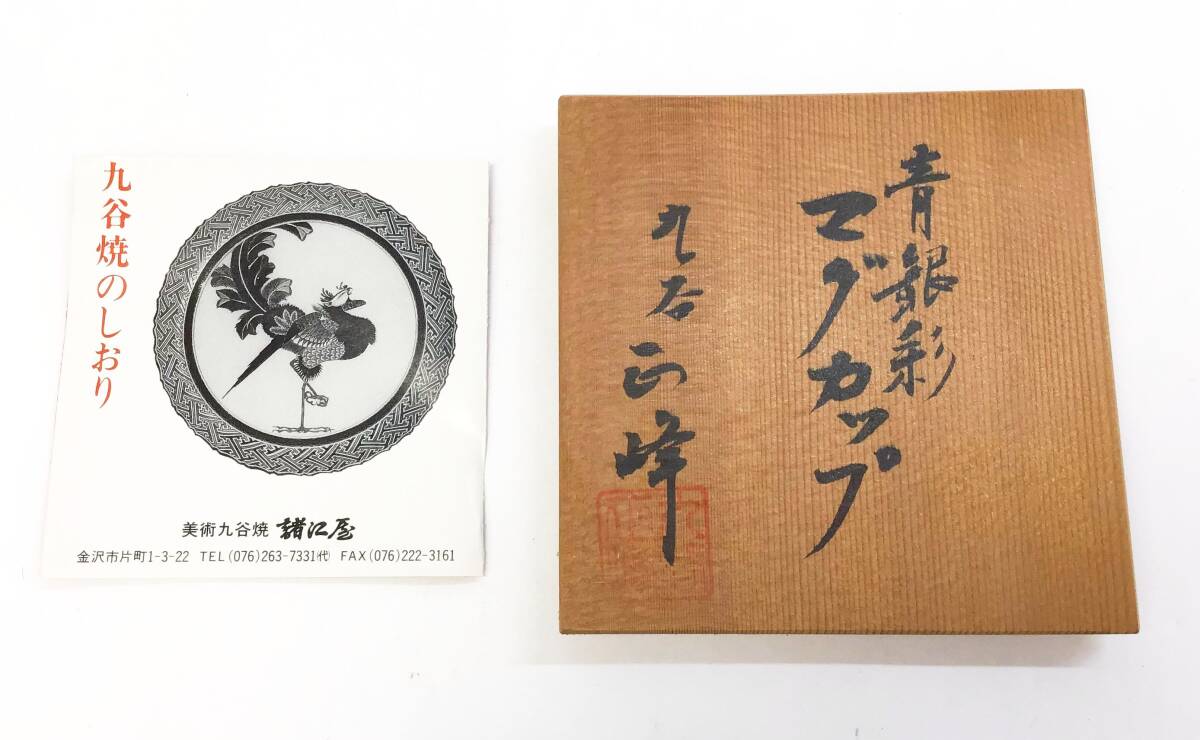 九谷焼のしおり
美術九谷焼 諸江屋
金沢市片町1-3-22 TEL(076)263-7331㈹ FAX(076)222-3161
青銀彩
マグカップ
九谷
正峰